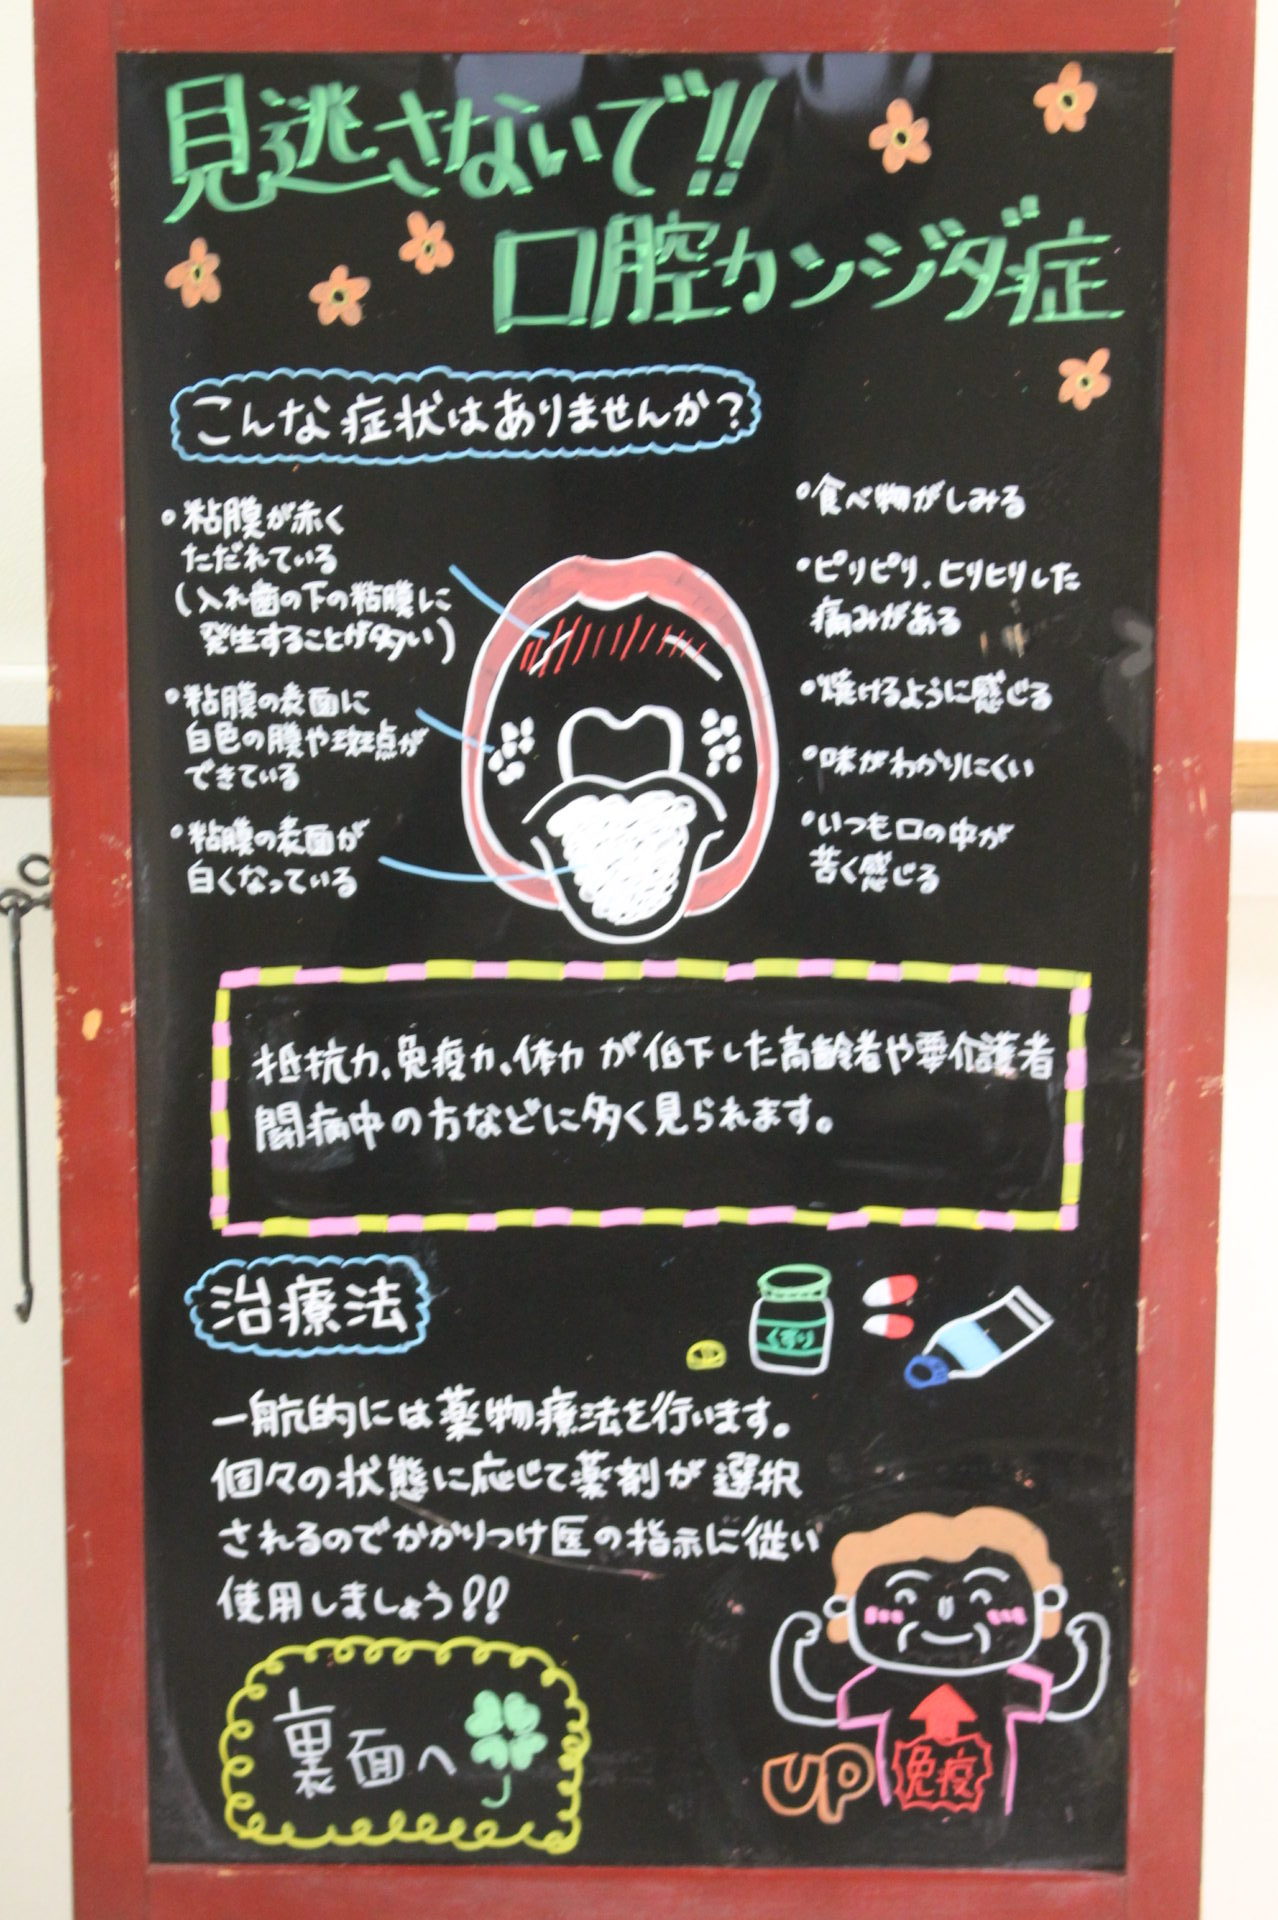 見逃さないで!!
口腔カンジダ症
こんな症状はありませんか？
•粘膜が赤く
ただれている
(入れ歯の下の粘膜に
発生することが多い)
•粘膜の表面に
白色の膜や斑点が
できている
•粘膜の表面が
白くなっている
•食べ物がしみる
•ピリピリ、ヒリヒリした
痛みがある
•焼けるように感じる
•味がわかりにくい
•いつも口の中が
苦く感じる
抵抗力、免疫力、体力が低下した高齢者や要介護者
闘病中の方などに多く見られます。
治療法
くすり
一般的には薬物療法を行います。
個々の状態に応じて薬剤が選択
されるのでかかりつけ医の指示に従い
使用しましょう!!
裏面へ
UP
免疫